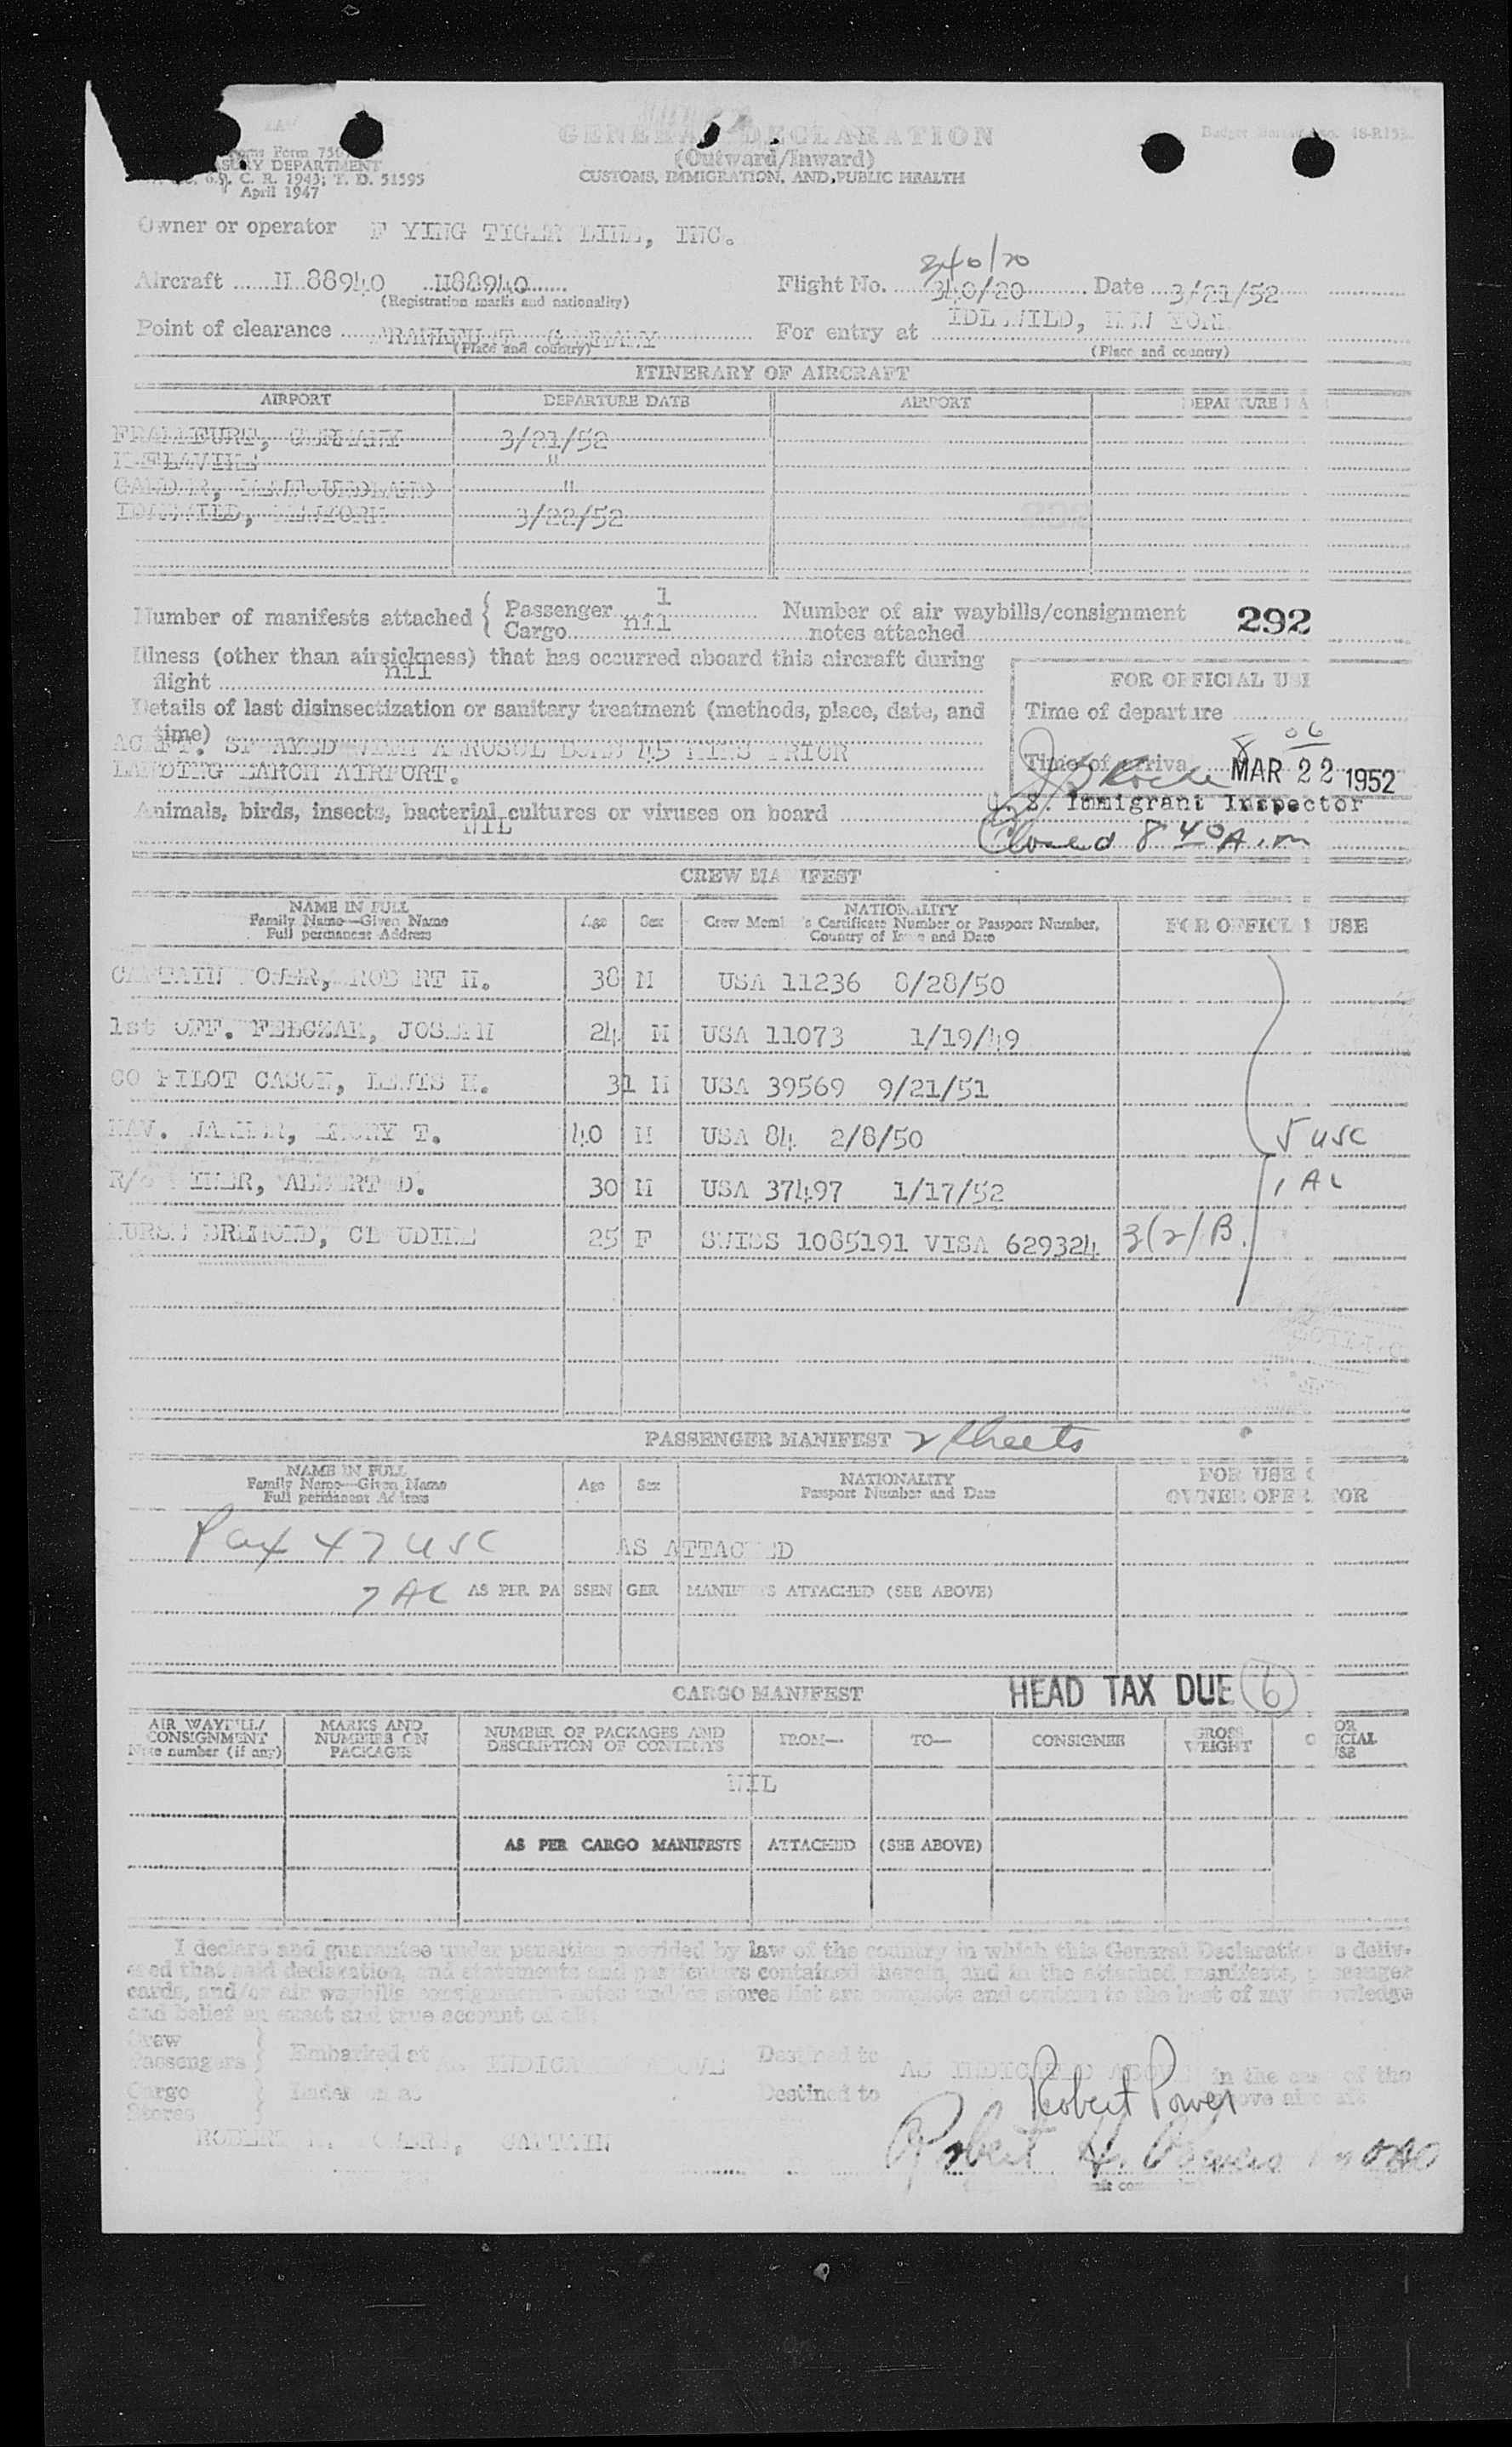 GENERAL DECLARATION
(Outward/Inward)
CUSTOMS, IMMIGRATION, AND PUBLIC HEALTH
Form 750
DEPARTMENT
C. R. 1943; T. D. 51595
April 1947
Owner or operator F YING TIGER LINE, INC.
340/20
Aircraft N 88940 N88940 Flight No. 340/20 Date 3/21/52
(Registration marks and nationality)
Point of clearance FRANKFURT, GERMANY For entry at IDLEWILD, NEW YORK
(Place and country) (Place and country)
ITINERARY OF AIRCRAFT
AIRPORT DEPARTURE DATE AIRPORT DEPARTURE DA
FRANKFURT, GERMANY 3/21/52
KEFLAVIK "
GANDER, NEWFOUNDLAND "
IDLEWILD, NEWYORK 3/22/52
Number of manifests attached { Passenger 1 Number of air waybills/consignment 292
Cargo nil notes attached
Illness (other than airsickness) that has occurred aboard this aircraft during
flight nil
FOR OFFICIAL USE
Details of last disinsectization or sanitary treatment (methods, place, date, and
time)
Time of departure
ACRFT. SPRAYED WITH AEROSOL BOMB 45 MINS PRIOR
LANDING EARCH AIRPORT.
Time of arriva 8 06 MAR 22 1952
U. S. Immigrant Inspector
Animals, birds, insects, bacterial cultures or viruses on board
NIL
Closed 8 40 A.m
CREW MA IFEST
NAME IN FULL
Family Name—Given Name
Full permanent Address
Age Sex
NATIONALITY
Crew Memb 's Certificate Number or Passport Number,
Country of Issue and Date
FOR OFFICIAL USE
CAPTAIN POWER, ROBERT H. 38 M USA 11236 8/28/50
1st OFF. FELCZAK, JOSEPH 24 M USA 11073 1/19/49
CO PILOT CASON, LEWIS H. 31 M USA 39569 9/21/51
NAV. T. 40 M USA 84 2/8/50 5 USC
R/O ALBERT D. 30 M USA 37497 1/17/52 1 AL
NURSE BREMOND, CLAUDINE 25 F SWISS 1085191 VISA 629324 3(2)B.
PASSENGER MANIFEST 2 sheets
NAME IN FULL
Family Name—Given Name
Full permanent Address
Age Sex
NATIONALITY
Passport Number and Date
FOR USE O
OWNER OPERATOR
Pax 47 USC AS ATTACHED
7 AL AS PER PASSENGER MANIFESTS ATTACHED (SEE ABOVE)
CARGO MANIFEST HEAD TAX DUE 6
AIR WAYBILL/
CONSIGNMENT
Note number (if any)
MARKS AND
NUMBERS ON
PACKAGES
NUMBER OF PACKAGES AND
DESCRIPTION OF CONTENTS
FROM— TO— CONSIGNEE
GROSS
WEIGHT
OR
O ICIAL
USE
NIL
AS PER CARGO MANIFESTS ATTACHED (SEE ABOVE)
I declare and guarantee under penalties provided by law of the country in which this General Declaration is deliv-
ered that said declaration, and statements and particulars contained therein, and in the attached manifests, passenger
cards, and/or air waybills consignments notes and/or stores list are complete and contain to the best of my knowledge
and belief an exact and true account of all:
Crew
Passengers } Embarked at AS INDICATED ABOVE Destined to AS INDICATED ABOVE in the case of the
Cargo
Stores } Laden on at Destined to above aircraft
Robert Power
ROBERT H. POWERS, CAPTAIN
Robert H. Powers